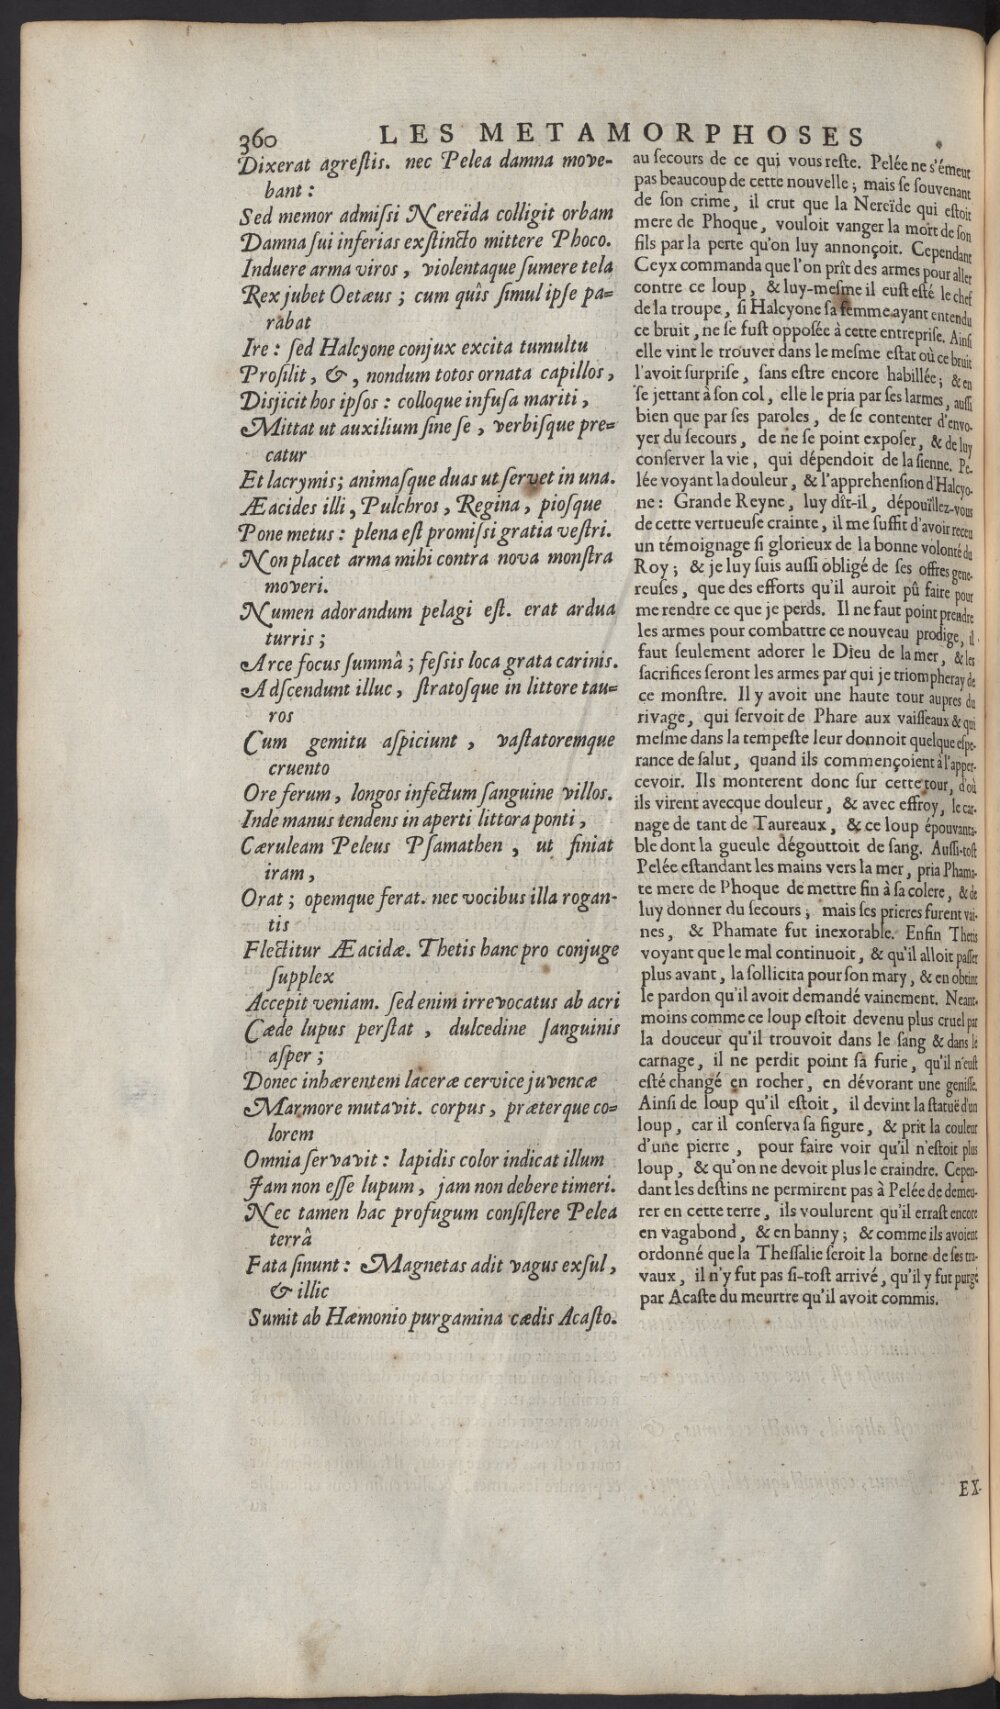 360 LES METAMORPHOSES
Dixerat agreſtis. nec Pelea damna move-
bant :
Sed memor admiſsi Nereïda colligit orbam
Damna ſui inferias exſtincto mittere Phoco.
Induere arma viros, violentaque ſumere tela
Rex jubet Oetæus ; cum quîs ſimul ipſe pa-
rabat
Ire : ſed Halcyone conjux excita tumultu
Proſilit, &, nondum totos ornata capillos,
Disjicit hos ipſos : colloque infuſa mariti,
Mittat ut auxilium ſine ſe, verbiſque pre-
catur
Et lacrymis ; animaſque duas ut ſervet in una.
Æacides illi, Pulchros, Regina, pioſque
Pone metus : plena eſt promiſsi gratia veſtri.
Non placet arma mihi contra nova monſtra
moveri.
Numen adorandum pelagi eſt. erat ardua
turris ;
Arce focus ſummâ ; feſsis loca grata carinis.
Adſcendunt illuc, ſtratoſque in littore tau-
ros
Cum gemitu aſpiciunt, vaſtatoremque
cruento
Ore ferum, longos infectum ſanguine villos.
Inde manus tendens in aperti littora ponti,
Cæruleam Peleus Pſamathen, ut finiat
iram,
Orat ; opemque ferat. nec vocibus illa rogan-
tis
Flectitur Æacidæ. Thetis hanc pro conjuge
ſupplex
Accepit veniam. ſed enim irrevocatus ab acri
Cæde lupus perſtat, dulcedine ſanguinis
aſper ;
Donec inhærentem laceræ cervice juvencæ
Marmore mutavit. corpus, præterque co-
lorem
Omnia ſervavit : lapidis color indicat illum
Jam non eſſe lupum, jam non debere timeri.
Nec tamen hac profugum conſiſtere Pelea
terrâ
Fata ſinunt : Magnetas adit vagus exſul,
& illic
Sumit ab Hæmonio purgamina cædis Acaſto.
au ſecours de ce qui vous reſte. Pelée ne s'émeut
pas beaucoup de cette nouvelle ; mais ſe ſouvenant
de ſon crime, il crut que la Nereïde qui eſtoit
mere de Phoque, vouloit vanger la mort de ſon
fils par la perte qu'on luy annonçoit. Cependant
Ceyx commanda que l'on prît des armes pour aller
contre ce loup, & luy-meſme il euſt eſté le chef
de la troupe, ſi Halcyone ſa femme ayant entendu
ce bruit, ne ſe fuſt oppoſée à cette entrepriſe. Ainſi
elle vint le trouver dans le meſme eſtat où ce bruit
l'avoit ſurpriſe, ſans eſtre encore habillée ; & en
ſe jettant à ſon col, elle le pria par ſes larmes, auſſi
bien que par ſes paroles, de ſe contenter d'envo-
yer du ſecours, de ne ſe point expoſer, & de luy
conſerver la vie, qui dépendoit de la ſienne. Pe-
lée voyant la douleur, & l'apprehenſion d'Halcyo-
ne : Grande Reyne, luy dît-il, dépouïllez-vous
de cette vertueuſe crainte, il me ſuffit d'avoir receu
un témoignage ſi glorieux de la bonne volonté du
Roy ; & je luy ſuis auſſi obligé de ſes offres gene-
reuſes, que des efforts qu'il auroit pû faire pour
me rendre ce que je perds. Il ne faut point prendre
les armes pour combattre ce nouveau prodige, il
faut ſeulement adorer le Dieu de la mer, & les
ſacrifices ſeront les armes par qui je triompheray de
ce monſtre. Il y avoit une haute tour aupres du
rivage, qui ſervoit de Phare aux vaiſſeaux & qui
meſme dans la tempeſte leur donnoit quelque eſpe-
rance de ſalut, quand ils commençoient à l'apper-
cevoir. Ils monterent donc ſur cette tour, d'où
ils virent avecque douleur, & avec effroy, le car-
nage de tant de Taureaux, & ce loup épouvanta-
ble dont la gueule dégouttoit de ſang. Auſſi-toſt
Pelée eſtandant les mains vers la mer, pria Phama-
te mere de Phoque de mettre fin à ſa colere, & de
luy donner du ſecours ; mais ſes prieres furent vai-
nes, & Phamate fut inexorable. Enfin Thetis
voyant que le mal continuoit, & qu'il alloit paſſer
plus avant, la ſollicita pour ſon mary, & en obtint
le pardon qu'il avoit demandé vainement. Neant-
moins comme ce loup eſtoit devenu plus cruel par
la douceur qu'il trouvoit dans le ſang & dans le
carnage, il ne perdit point ſa furie, qu'il n'euſt
eſté changé en rocher, en dévorant une geniſſe.
Ainſi de loup qu'il eſtoit, il devint la ſtatuë d'un
loup, car il conſerva ſa figure, & prit la couleur
d'une pierre, pour faire voir qu'il n'eſtoit plus
loup, & qu'on ne devoit plus le craindre. Cepen-
dant les deſtins ne permirent pas à Pelée de demeu-
rer en cette terre, ils voulurent qu'il erraſt encore
en vagabond, & en banny ; & comme ils avoient
ordonné que la Theſſalie ſeroit la borne de ſes tra-
vaux, il n'y fut pas ſi-toſt arrivé, qu'il y fut purgé
par Acaſte du meurtre qu'il avoit commis.
EX-